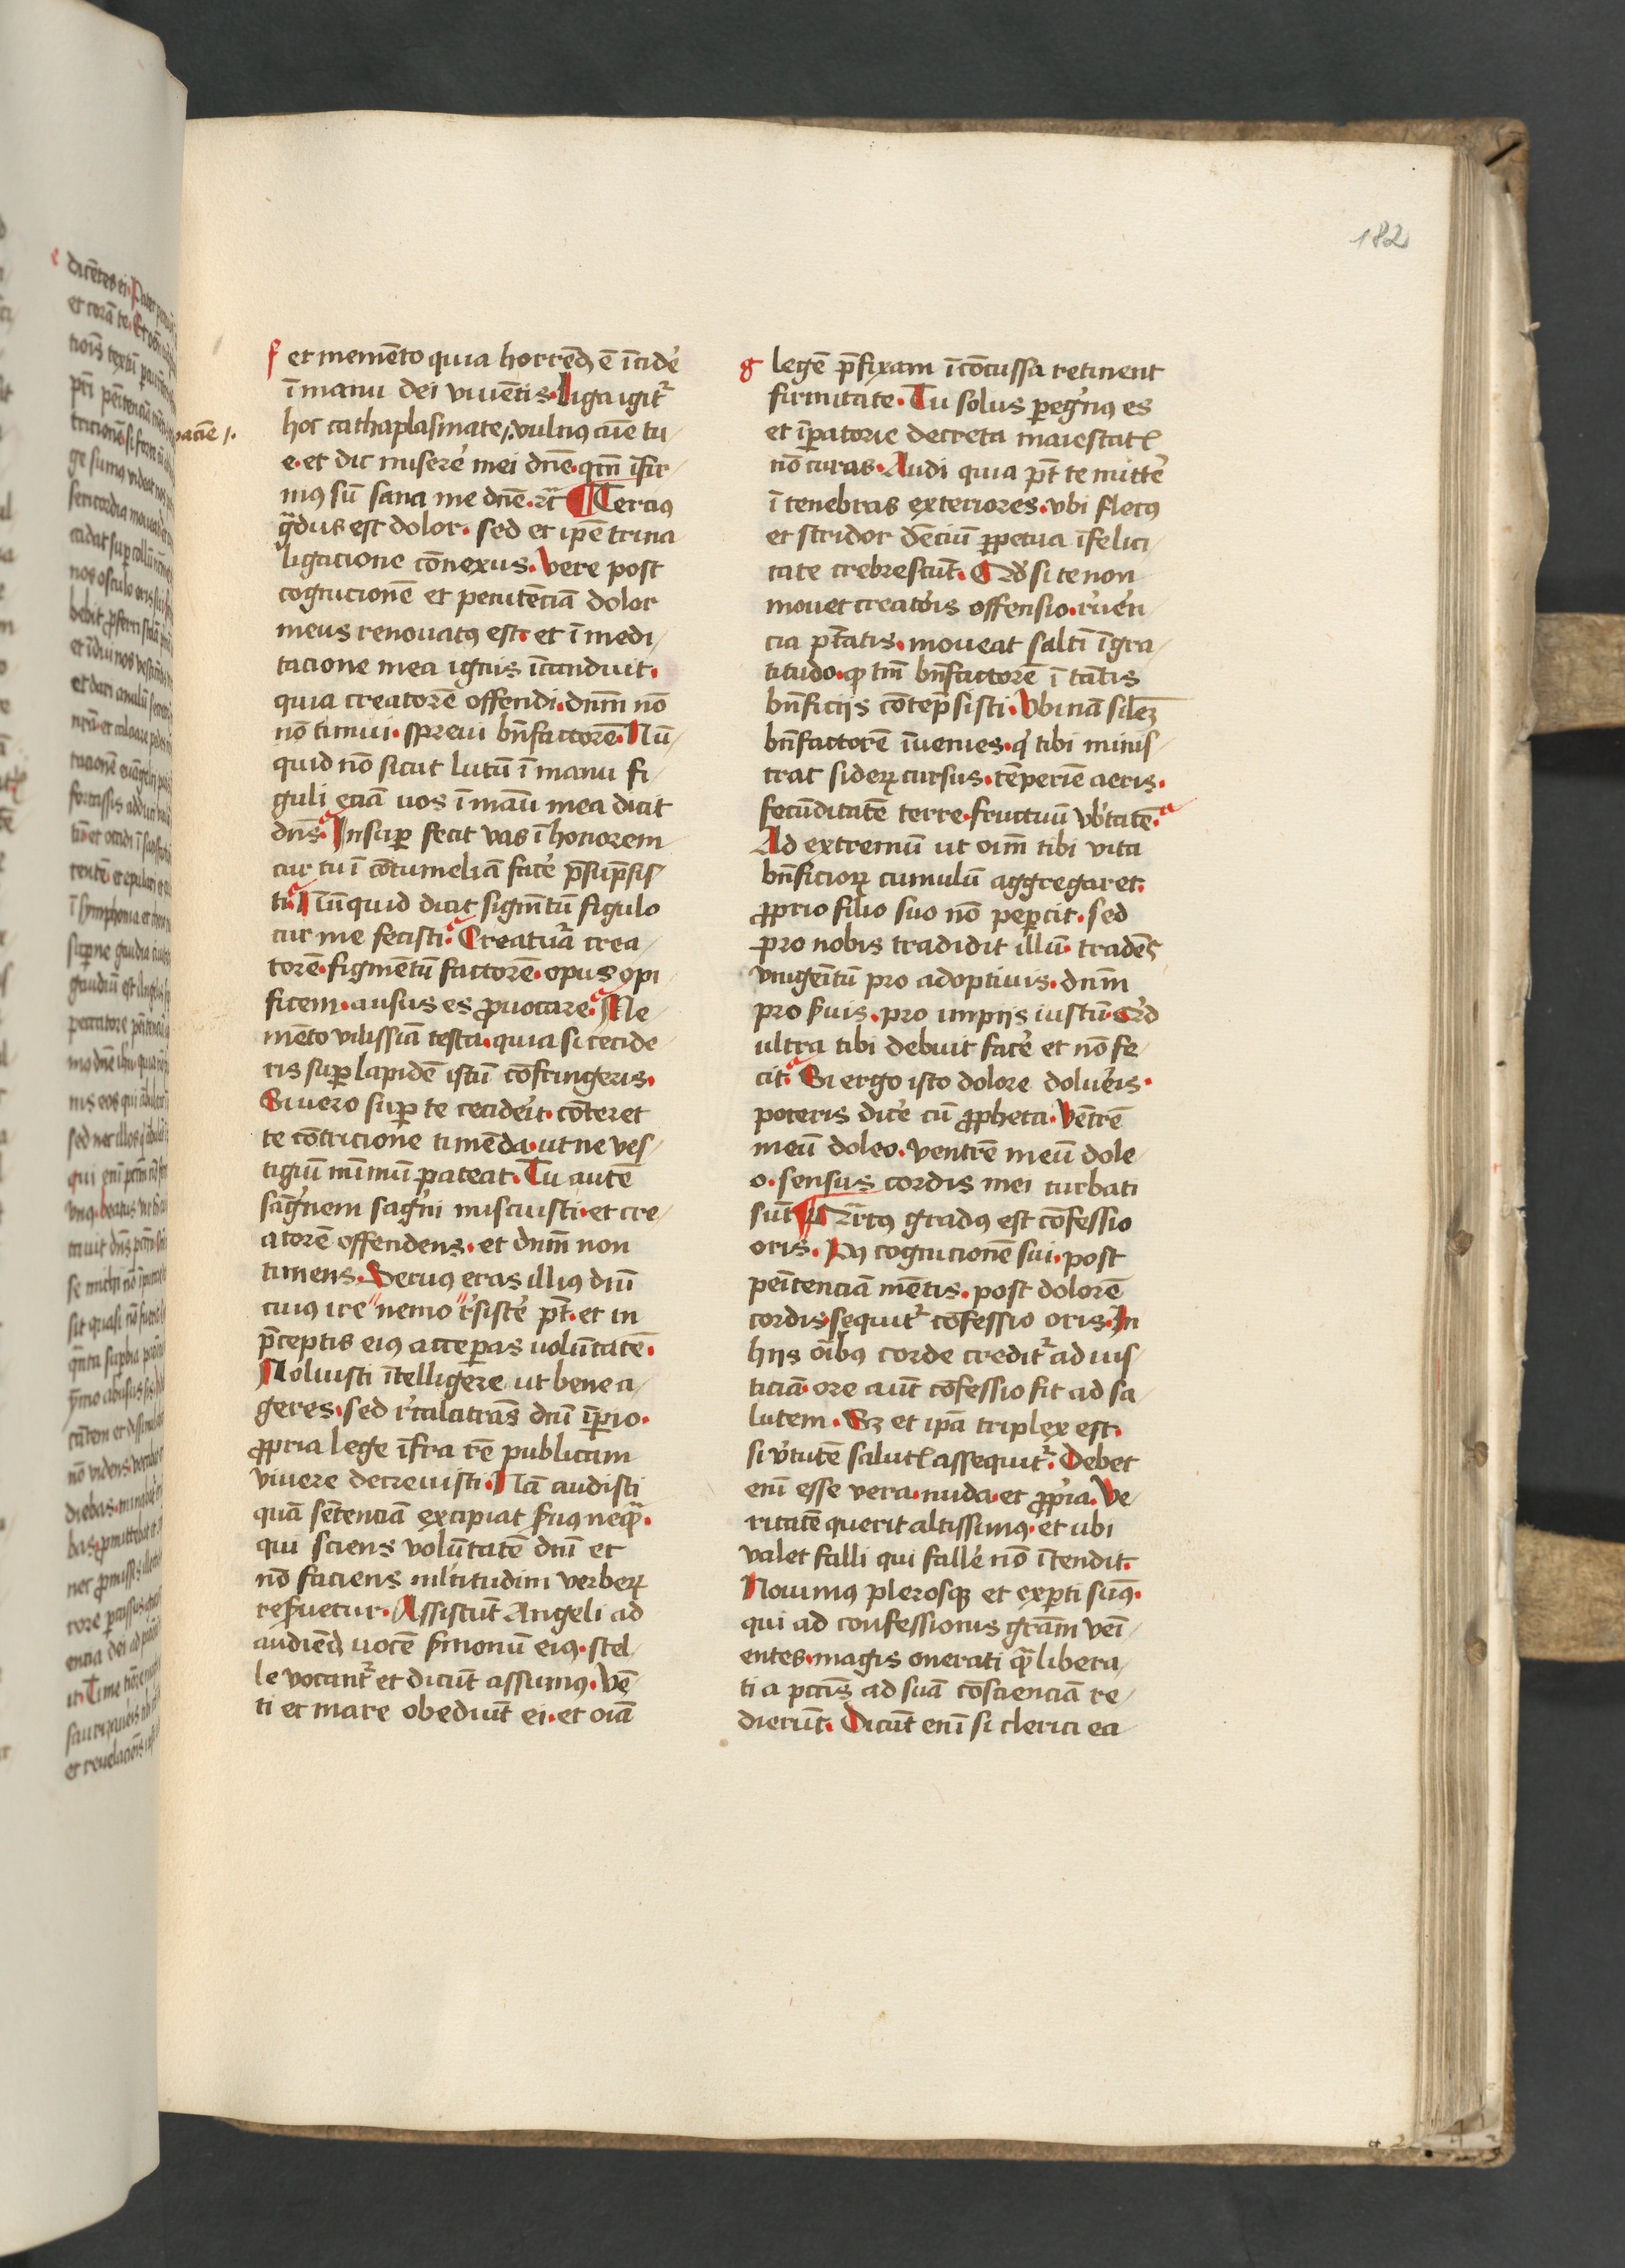 182
f et meme̅to quia horrend᷒ e̅ i̅cide̓
i̅ manu dei viue̅tis. Liga igit᷑
hoc cathaplasmate, vulnꝰ ani̅e tu-
e. et dic misere̓ mei dn̅e. qm̅ i̅fir-
mꝰ su̅ sana me dn̅e. ⁊c̅ ¶ Terciꝰ
gͣdus est dolor. sed et ip̅e trina
ligacione co̅nexus. Vere post
cognicione̅ et penite̅cia̅ dolor
meus renouatꝰ est. et i̅ medi-
tacione mea ignis i̅canduit.
quia creatore̅ offendi. dn̅m no̅
no̅ timui. spreui bn̅factore̅. Nu̅-
quid no̅ sicut lutu̅ i̅ manu fi-
guli ecia̅ uos i̅ ma̅u mea dicit
dn̅s. Insuꝑ fecit vas i̅ honorem
cur tu i̅ co̅tumelia̅ face̓ p̅su̅p̅sis-
ti. Nu̅quid dicit figm̅tu̅ figulo
cur me fecisti. Creatuͣ crea-
tore̅. figme̅tu̅ factore̅. opus opi-
ficem. ausus es ꝓuocare. Me-
me̅to vilissia̅ testa. quia si cecide-
ris suꝑ lapide̅ istu̅ co̅fringeris.
Si uero suꝑ te cecide̓it. co̅teret
te co̅tricione time̅da. ut ne ves-
tigiu̅ mi̅mu̅ pateat. Tu aute̅
sag̅nem sag̅ni miscuisti. et cre-
atore̅ offendens. et dn̅m non
timens. Seruꝰ eras illiꝰ dn̅i
cuiꝰ ire nemo r̓siste̓ pt̅. et in
p̅ceptis eiꝰ acceꝑas uolu̅tate̅.
Noluisti i̅telligere ut bene a-
geres. sed r̓calcitra̅s dn̅i i̅ꝑio.
ꝓpria lege i̅fra re̅ publicam
viuere decreuisti. Na̅ audisti
qua̅ se̅tencia̅ excipiat ẜuꝰ neqͣ.
qui sciens volu̅tate̅ dn̅i et
no̅ faciens mltitudini verbeꝝ
reẜuetur. Assistu̅t Angeli ad
audiend᷒ uoce̅ ẜmonu̅ eiꝰ. stel-
le vocant᷑ et dicu̅t assumꝰ. Ve̅-
ti et mare obediu̅t ei. et oi̅a
g lege̅ p̅fixam i̅co̅cussa retinent
firmitate. Tu solus ꝑeg̓nꝰ es
et i̅ꝑatorie decreta maiestatꝭ
no̅ curas. Audi quia pt̅ te mitte̓
i̅ tenebras exteriores. vbi fletꝰ
et stridor de̅ciu̅ ꝑpetua i̅felici-
tate crebrescu̅t. Qd̓ si te non
mouet creato̓is offensio. r̓ue̓n-
cia pt̅atis. moueat salti̅ i̅gra-
titudo. ꝙ tm̅ bn̅factore̅ i̅ ta̅tis
bn̅ficijs co̅tep̅sisti. Vbi na̅ sile̅ꝫ
bn̅factore̅ i̅uenies. q̓ tibi minis-
trat sideꝝ cursus. te̅perie̅ aeris.
fecu̅ditate̅ terre. fructuu̅ vb̓tate̅.
Ad extremu̅ ut oi̅m tibi vita
bn̅ficioꝝ cumulu̅ aggregaret.
ꝓprio filio suo no̅ peꝑcit. sed
pro nobis tradidit illu̅. trade̅s
vnige̅itu̅ pro adoptiuis. dn̅m
pro ẜuis. pro impijs iustu̅. Qd̓
ultra tibi debuit face̓ et no̅ fe-
cit. Si ergo isto dolore dolue̓is.
poteris dice̓ cu̅ ꝓpheta. Ve̅tre̅
meu̅ doleo. ventre̅ meu̅ dole-
o. sensus cordis mei turbati
su̅t ¶ Qrtꝰ gradꝰ est co̅fessio
oris. Pꝰ cognicione̅ sui. post
pe̅itencia̅ me̅tis. post dolore̅
cordis. sequit᷑ co̅fessio oris. In
hijs oi̅bꝰ corde credit᷑ ad ius-
ticia̅. ore au̅t co̅fessio fit ad sa-
lutem. Sꝫ et ip̅a triplex est.
si v̓tute̅ salutꝭ assequit᷑. Debet
eni̅ esse vera. nuda. et ꝓp̓ia. Ve-
ritate̅ querit altissimꝰ. et ubi
valet falli qui falle̓ no̅ i̅tendit.
Nouimꝰ plerosqꝫ et exꝑti sumꝰ.
qui ad confessionis gra̅m veni̅-
entes. magis onerati qͣ libera-
ti a pcc̅is ad sua̅ co̅sciencia̅ re-
dieru̅t. Dicu̅t eni̅ si clerici ea